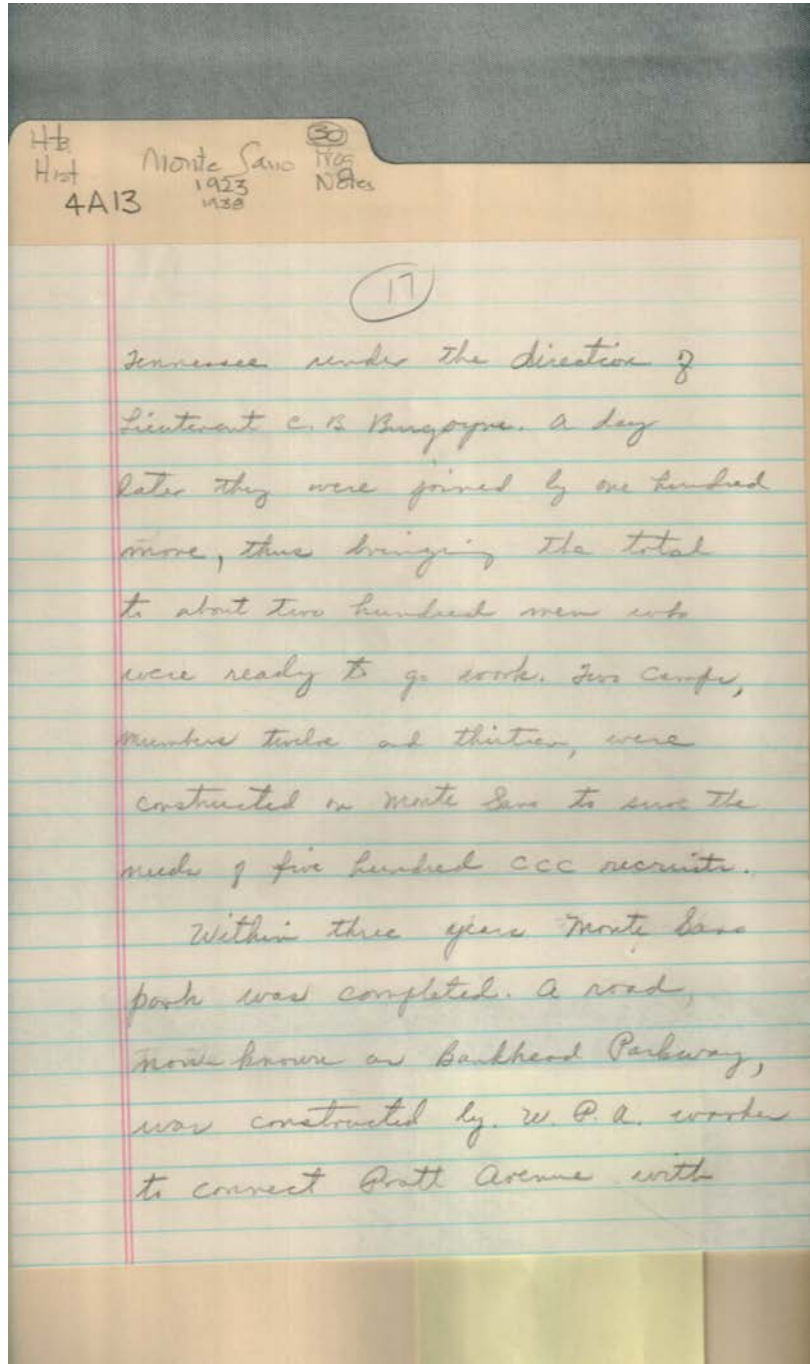 Htb
Hist
4A13
Monte Sano
1923
1938
30
Prog
Notes
17
Tennessee under the direction of
Lieutenant C. B Burgoyne. A day
later they were joined by one hundred
more, thus bringing the total
to about two hundred men who
were ready to go work. Two camps,
numbers twelve and thirteen, were
constructed on Monte Sano to serve the
needs of five hundred CCC recruits.
Within three years Monte Sano
park was completed. A road,
now known as Bankhead Parkway,
was constructed by. W. P. A. worker
to connect Pratt Avenue with